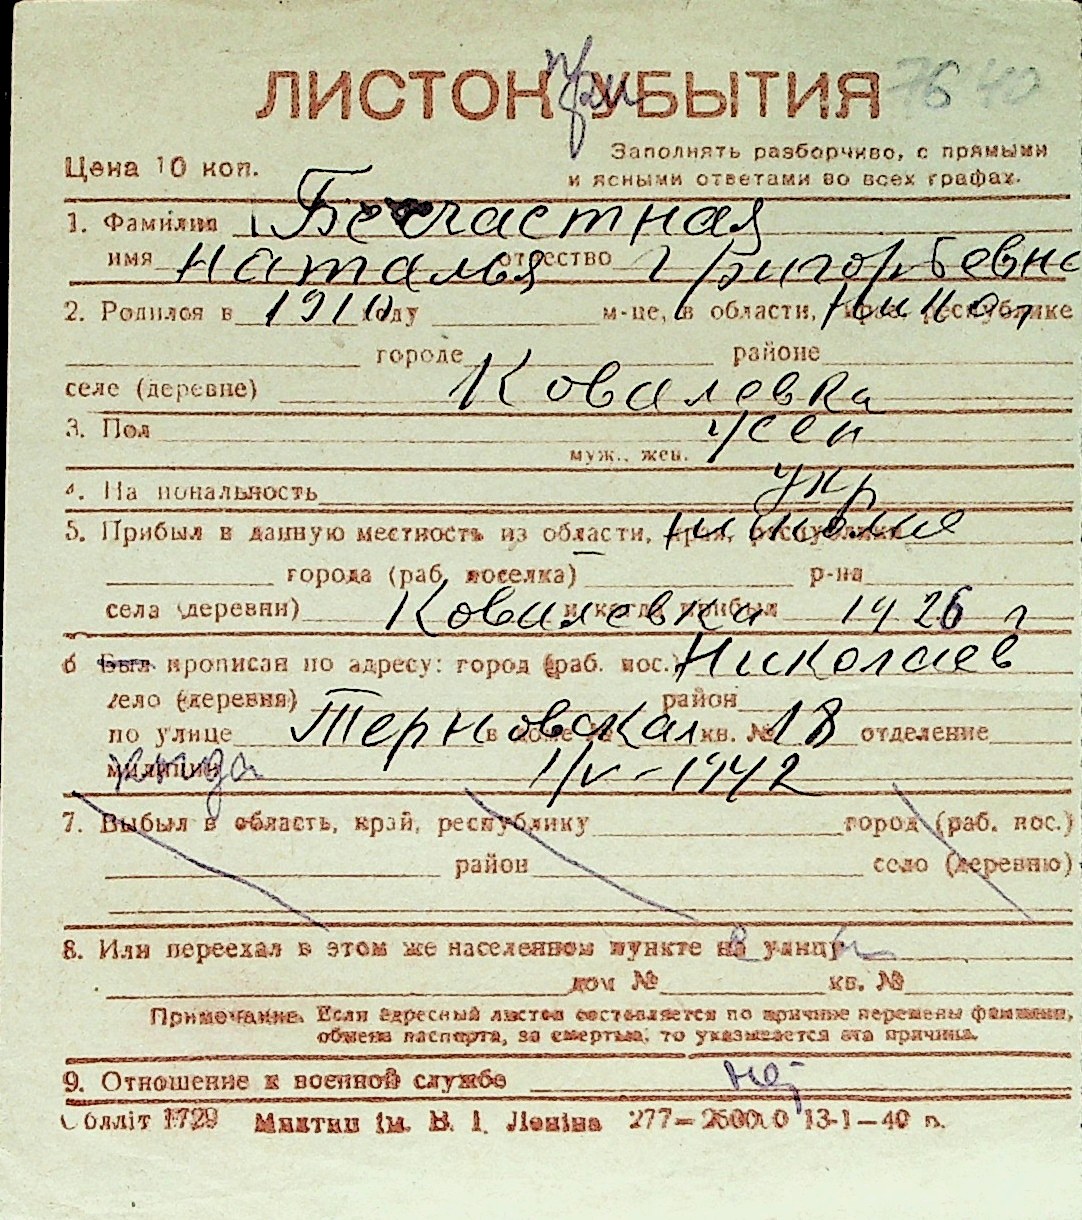 ЛИСТОК УБЫТИЯ
при
7640
Цена 10 коп.
Заполнять разборчиво, с прямыми
и ясными ответами во всех графах.
1. Фамилия Бесчастная
имя Наталья отчество Григорьевна
2. Родился в 1910 году м-це, в области, крае, республике Никол
городе районе
селе (деревне) Ковалевка
3. Пол жен
муж., жен.
4. Национальность укр
5. Прибыл в данную местность из области, края, республики николае
города (раб. поселка) р-на
села (деревни) Ковалевка и когда прибыл 1926 г
6 Был прописан по адресу: город (раб. пос.) Николаев
село (деревня) район
по улице Терновская в доме № кв. № 18 отделение
милиции 1/V-1942
7. Выбыл в область, край, республику город (раб. пос.)
район село (деревню)
8. Или переехал в этом же населенном пункте на улицу
дом № кв. №
Примечание. Если адресный листок составляется по причине перемены фамилии,
обмена паспорта, за смертью, то указывается эта причина.
9. Отношение к военной службе нет
Обллiт 1729 Миктип iм. В. I. Ленiна 277—250000 13-1—40 г.